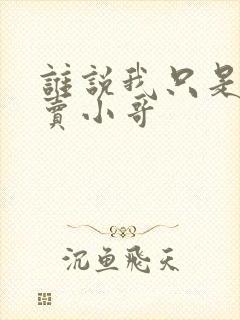 誰說我只是
賣小哥
沉魚飛天